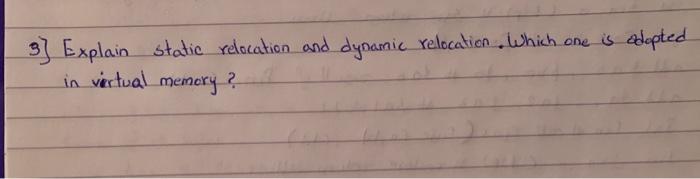 3] Explain static relocation and dynamic relocation. Which one is adopted
in virtual memory ?